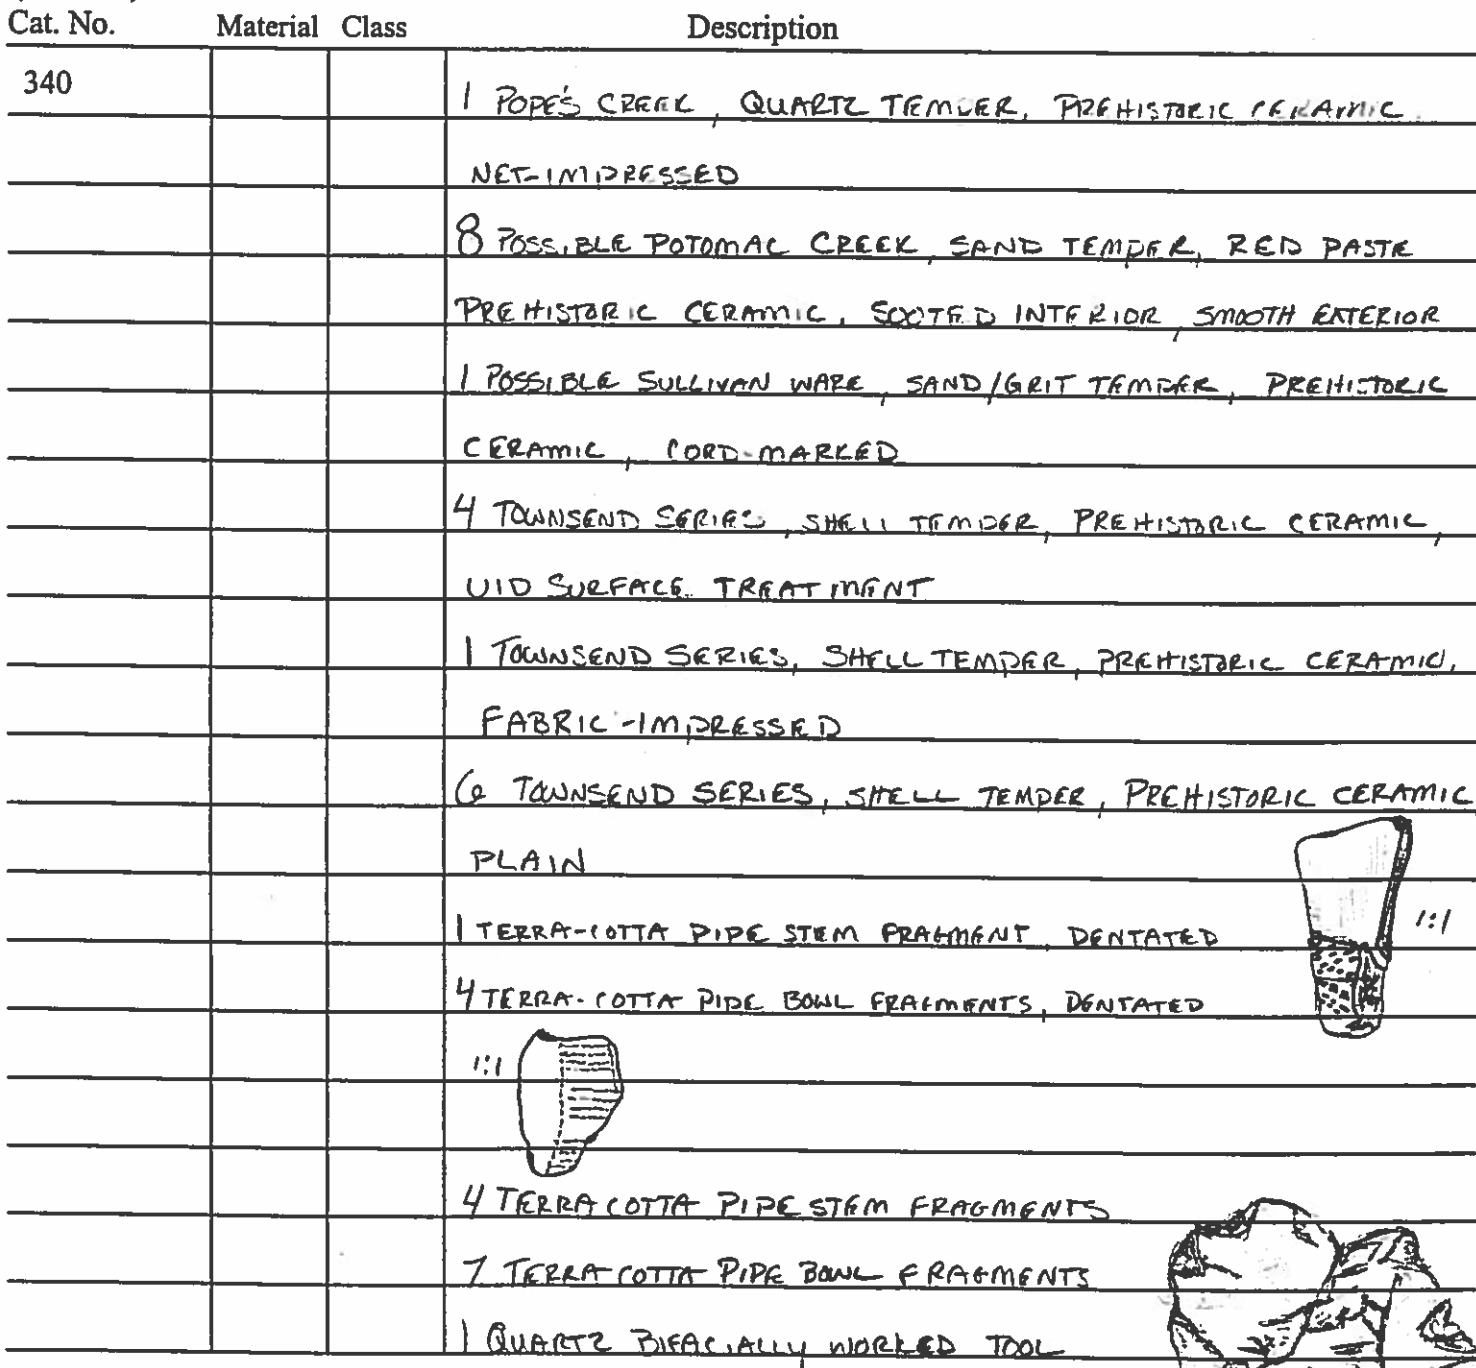 Cat. No. Material Class Description
340
1 POPE'S CREEK, QUARTZ TEMPER, PREHISTORIC CERAMIC
NET-IMPRESSED
8 POSSIBLE POTOMAC CREEK, SAND TEMPER, RED PASTE
PREHISTORIC CERAMIC, SOOTED INTERIOR, SMOOTH EXTERIOR
1 POSSIBLE SULLIVAN WARE, SAND/GRIT TEMPER, PREHISTORIC
CERAMIC, CORD-MARKED
4 TOWNSEND SERIES, SHELL TEMPER, PREHISTORIC CERAMIC,
UID SURFACE TREATMENT
1 TOWNSEND SERIES, SHELL TEMPER, PREHISTORIC CERAMIC,
FABRIC-IMPRESSED
6 TOWNSEND SERIES, SHELL TEMPER, PREHISTORIC CERAMIC
PLAIN
1 TERRA-COTTA PIPE STEM FRAGMENT, DENTATED
1:1
4 TERRA-COTTA PIPE BOWL FRAGMENTS, DENTATED
1:1
4 TERRA COTTA PIPE STEM FRAGMENTS
7 TERRA COTTA PIPE BOWL FRAGMENTS
1 QUARTZ BIFACIALLY WORKED TOOL